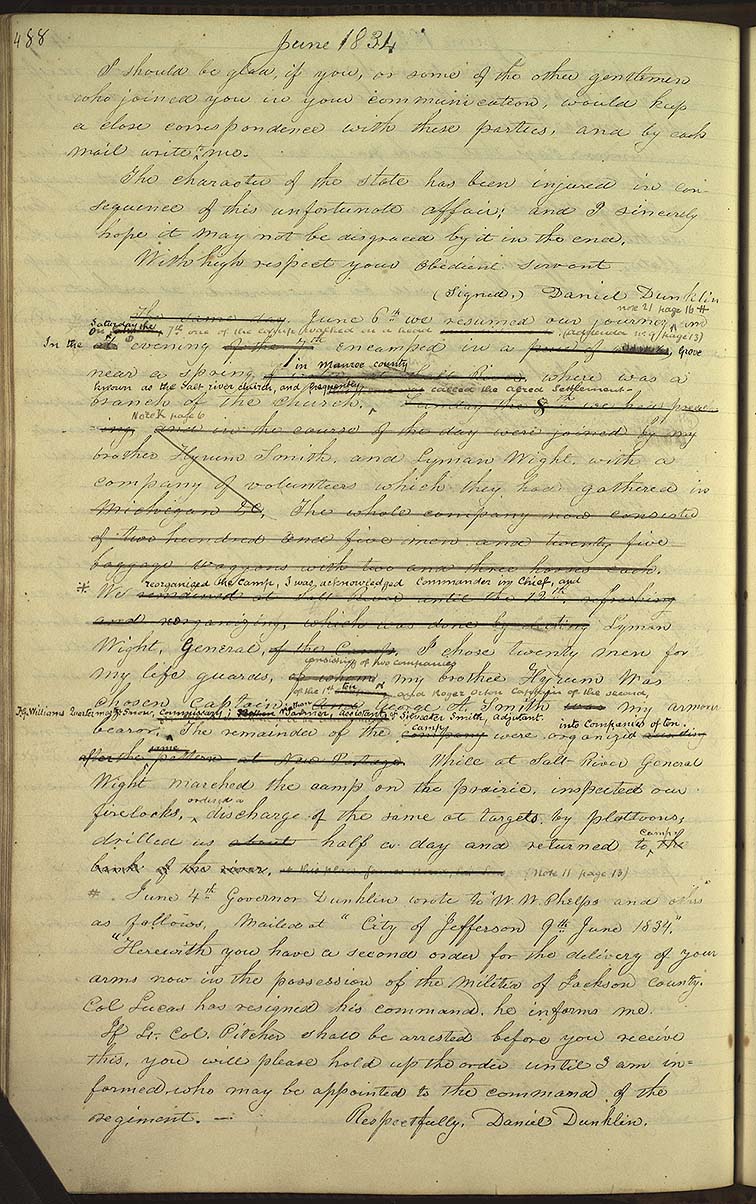 488
June 1834
I should be glad, if you, or some of the other gentlemen
who joined you in your communication, would keep
a close correspondence with these parties, and by each
mail write to me.
The character of the state has been injured in con-
sequence of this unfortunate affair; and I sincerely
hope it may not be disgraced by it in the end.
With high respect your obedient servant
(Signed,) Daniel Dunklin
note 21 page 16 #
The same day, June 6th we resumed our journey and
Saturday the
On 7th one of the camp
(addenda note 9/page 13)
In the at evening of the 7th encamped in a piece of grove
near a spring of in Monroe county Salt River, where was a
known as the Salt river church, and frequently called the Alred Settlement.
branch of the church. Sunday the 8th
Note K page 6
ing, and in the course of the day were joined by my
brother Hyrum Smith, and Lyman Wight, with a
company of volunteers which they had gathered in
Michigan &C. The whole company now consisted
of two hundred and five men and twenty five
baggage waggons with two and three horses each.
reorganised the camp, I was acknowledged Commander in Chief, and
* We remained at Salt River until the 12th, refreshing
and reorganizing, which was done by electing Lyman
Wight, General, of the Camp, I chose twenty men for
consisting of two companies
my life guards, of whom my brother Hyrum was
of the 1st ten, and Roger Orton Captain of the second,
chosen Captain, and George A. Smith was my armour
F.G. Williams Quartermaster Snow, Commissary; assistant; & Sylvester Smith, adjutant.
into companies of ten.
bearer. The remainder of the company camp were organized according
after the same pattern at New Portage. While at Salt River General
Wight marched the camp on the prairie, inspected our
firelocks, ordered a discharge of the same at targets by plattoons;
drilled us about half a day and returned to camp the
bank of the river. (Note 11 page 13)
* June 4th Governor Dunklin wrote to "W. W. Phelps and others"
as follows, Mailed at "City of Jefferson 9th June 1834."
"Herewith you have a second order for the delivery of your
arms now in the possession of the Militia of Jackson County.
Col Lucas has resigned his command, he informs me.
If Lt. Col. Pitcher shall be arrested before you receive
this, you will please hold up the order until I am in=
formed who may be appointed to the command of the
regiment. — Respectfully, Daniel Dunklin.